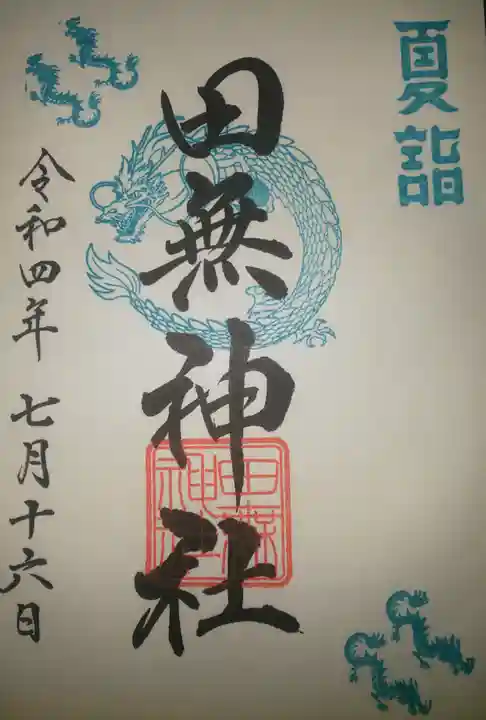 夏詣
田無神社
田無神社
令和四年 七月十六日